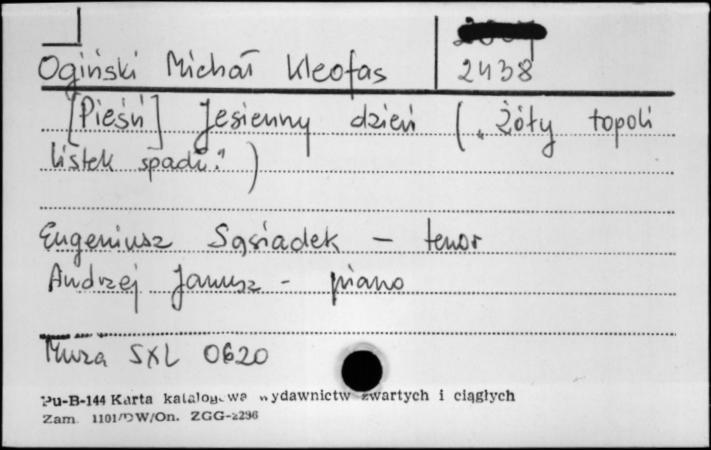 Ogiński Michał Kleofas
2438
[Pieśń] Jesienny dzień ( "Żółty topoli
listek spadł." )
Eugeniusz Sąsiadek - tenor
Andrzej Janusz - piano
Muza SXL 0620
Pu-B-144 Karta katalogowa wydawnictw zwartych i ciągłych
Zam. 1101/DW/On. ZGG-2296